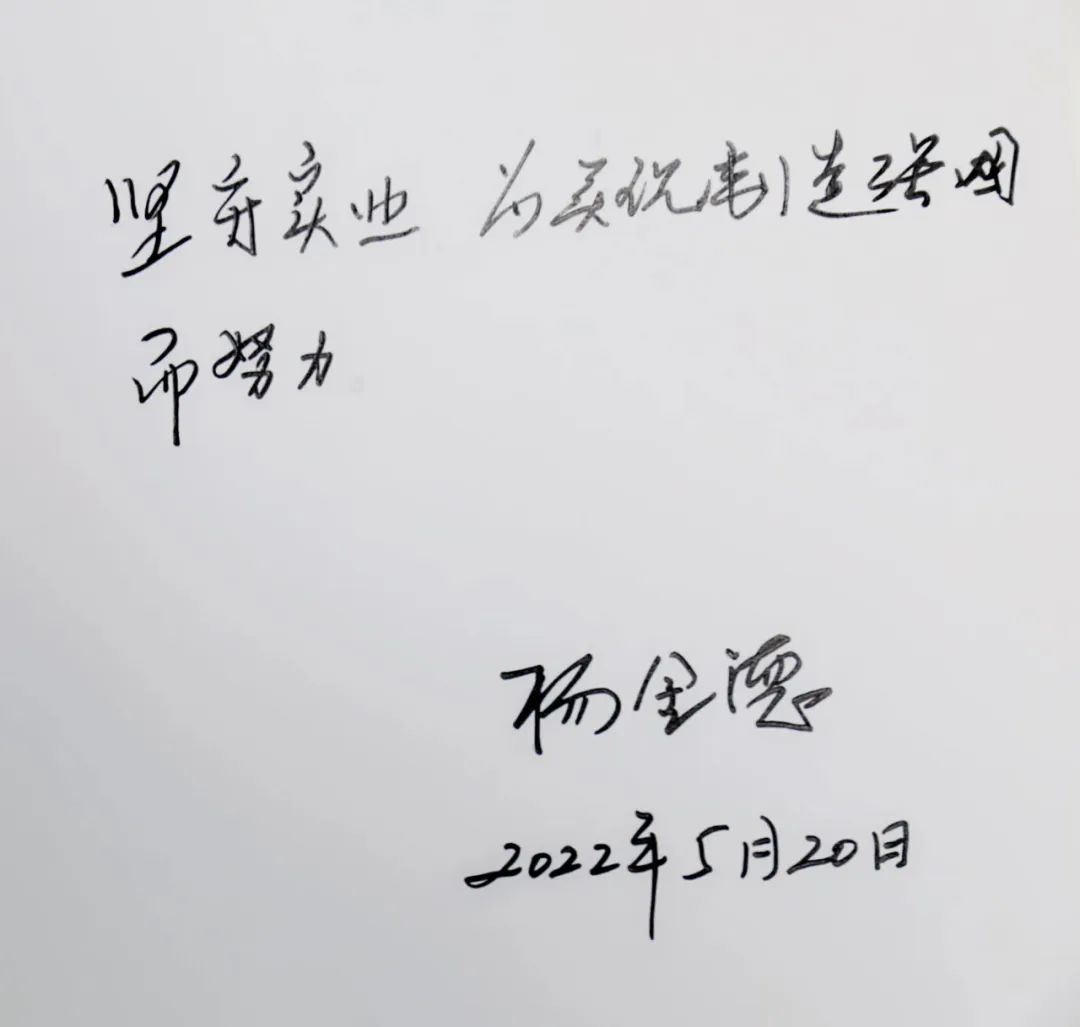 坚守实业 为实现制造强国
而努力
杨金德
2022年5月20日